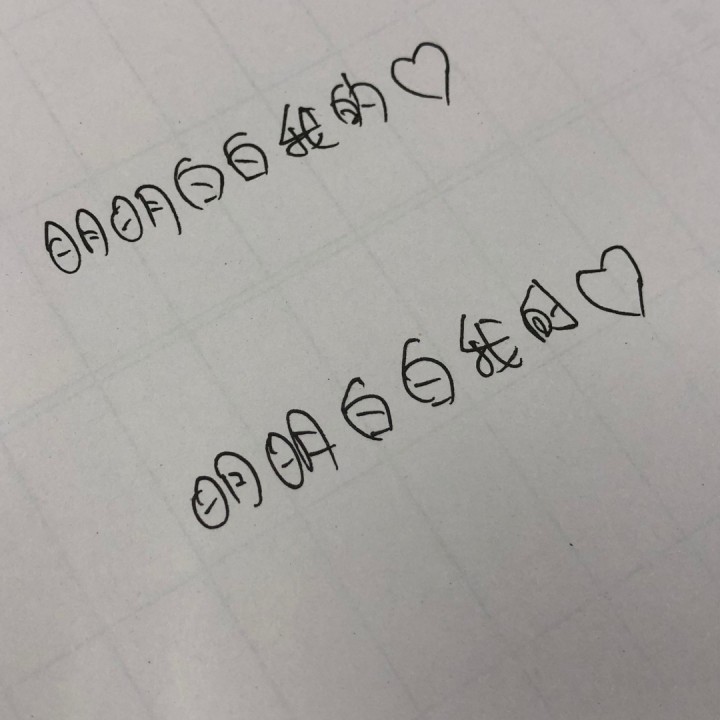 明明白白我的♡
明明白白我的♡